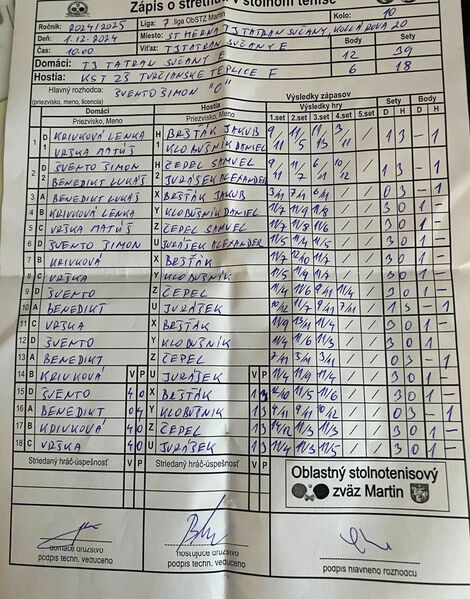 Zápis o stretnutí v stolnom tenise
Ročník: 2024/2025 Liga: 7. liga ObSTZ Martin Kolo: 10
Deň: 1.12.2024 Miesto: ST HERŇA TJ TATRAN SUČANY KOLLÁROVA 20
Čas: 10.00 Víťaz: TJ TATRAN SUČANY E Body Sety
Domáci: TJ TATRAN SUČANY E 12 39
Hostia: KST ZŠ TURČIANSKE TEPLICE F 6 18
Hlavný rozhodca: ŠVENTO ŠIMON "C"
(priezvisko, meno, licencia)
Výsledky zápasov
Domáci Hostia Výsledky hry Sety Body
Priezvisko, Meno Priezvisko, Meno 1.set 2.set 3.set 4.set 5.set D H D H
1 D1 KRIVKOVÁ LENKA H1 BRŠŤÁK JAKUB 1 3 - 1
VRŠKA MATÚŠ KLOBUŠNIK DANIEL
2 D2 ŠVENTO ŠIMON H2 ČEPEL SAMUEL 1 3 - 1
BENEDIKT LUKÁŠ JURÁŠEK ALEXANDER
3 A BENEDIKT LUKÁŠ X BRŠŤÁK JAKUB
4 B KRIVKOVÁ LENKA Y KLOBUŠNIK DANIEL 11/7 11/9 11/8 / / 3 0 1 -
5 C VRŠKA MATÚŠ Z ČEPEL SAMUEL 11/7 11/8 11/6 / / 3 0 1 -
6 D ŠVENTO ŠIMON U JURÁŠEK ALEXANDER 11/5 11/4 11/5 / / 3 0 1 -
7 B KRIVKOVÁ X BRŠŤÁK 11/7 12/10 11/7 / / 3 0 1 -
8 C VRŠKA Y KLOBUŠNIK 3 0 1 -
9 D ŠVENTO Z ČEPEL 3 0 1 -
10 A BENEDIKT U JURÁŠEK 10/12 11/7 9/11 7/11 / 1 3 - 1
11 C VRŠKA X BRŠŤÁK 11/9 13/11 11/4 / / 3 0 1 -
12 D ŠVENTO Y KLOBUŠNIK 3 0 1 -
13 A BENEDIKT Z ČEPEL 7/11 3/11 3/11 / / 0 3 - 1
14 B KRIVKOVÁ V P U JURÁŠEK V P 11/4 11/3 11/4 / / 3 0 1 -
15 D ŠVENTO 4 0 X BRŠŤÁK 1 3 12/10 11/5 11/6 / / 3 0 1 -
16 A BENEDIKT 0 4 Y KLOBUŠNIK 1 3 4/11 9/11 10/12 / / 0 3 - 1
17 B KRIVKOVÁ 4 0 Z ČEPEL 1 3 3 0 1 -
18 C VRŠKA 4 0 U JURÁŠEK 1 3 11/4 11/3 11/5 / / 3 0 1 -
Striedaný hráč-úspešnosť V P Striedaný hráč-úspešnosť V P
Oblastný stolnotenisový
zväz Martin
domáce družstvo hosťujúce družstvo
podpis techn. vedúceho podpis techn. vedúceho podpis hlavného rozhodcu